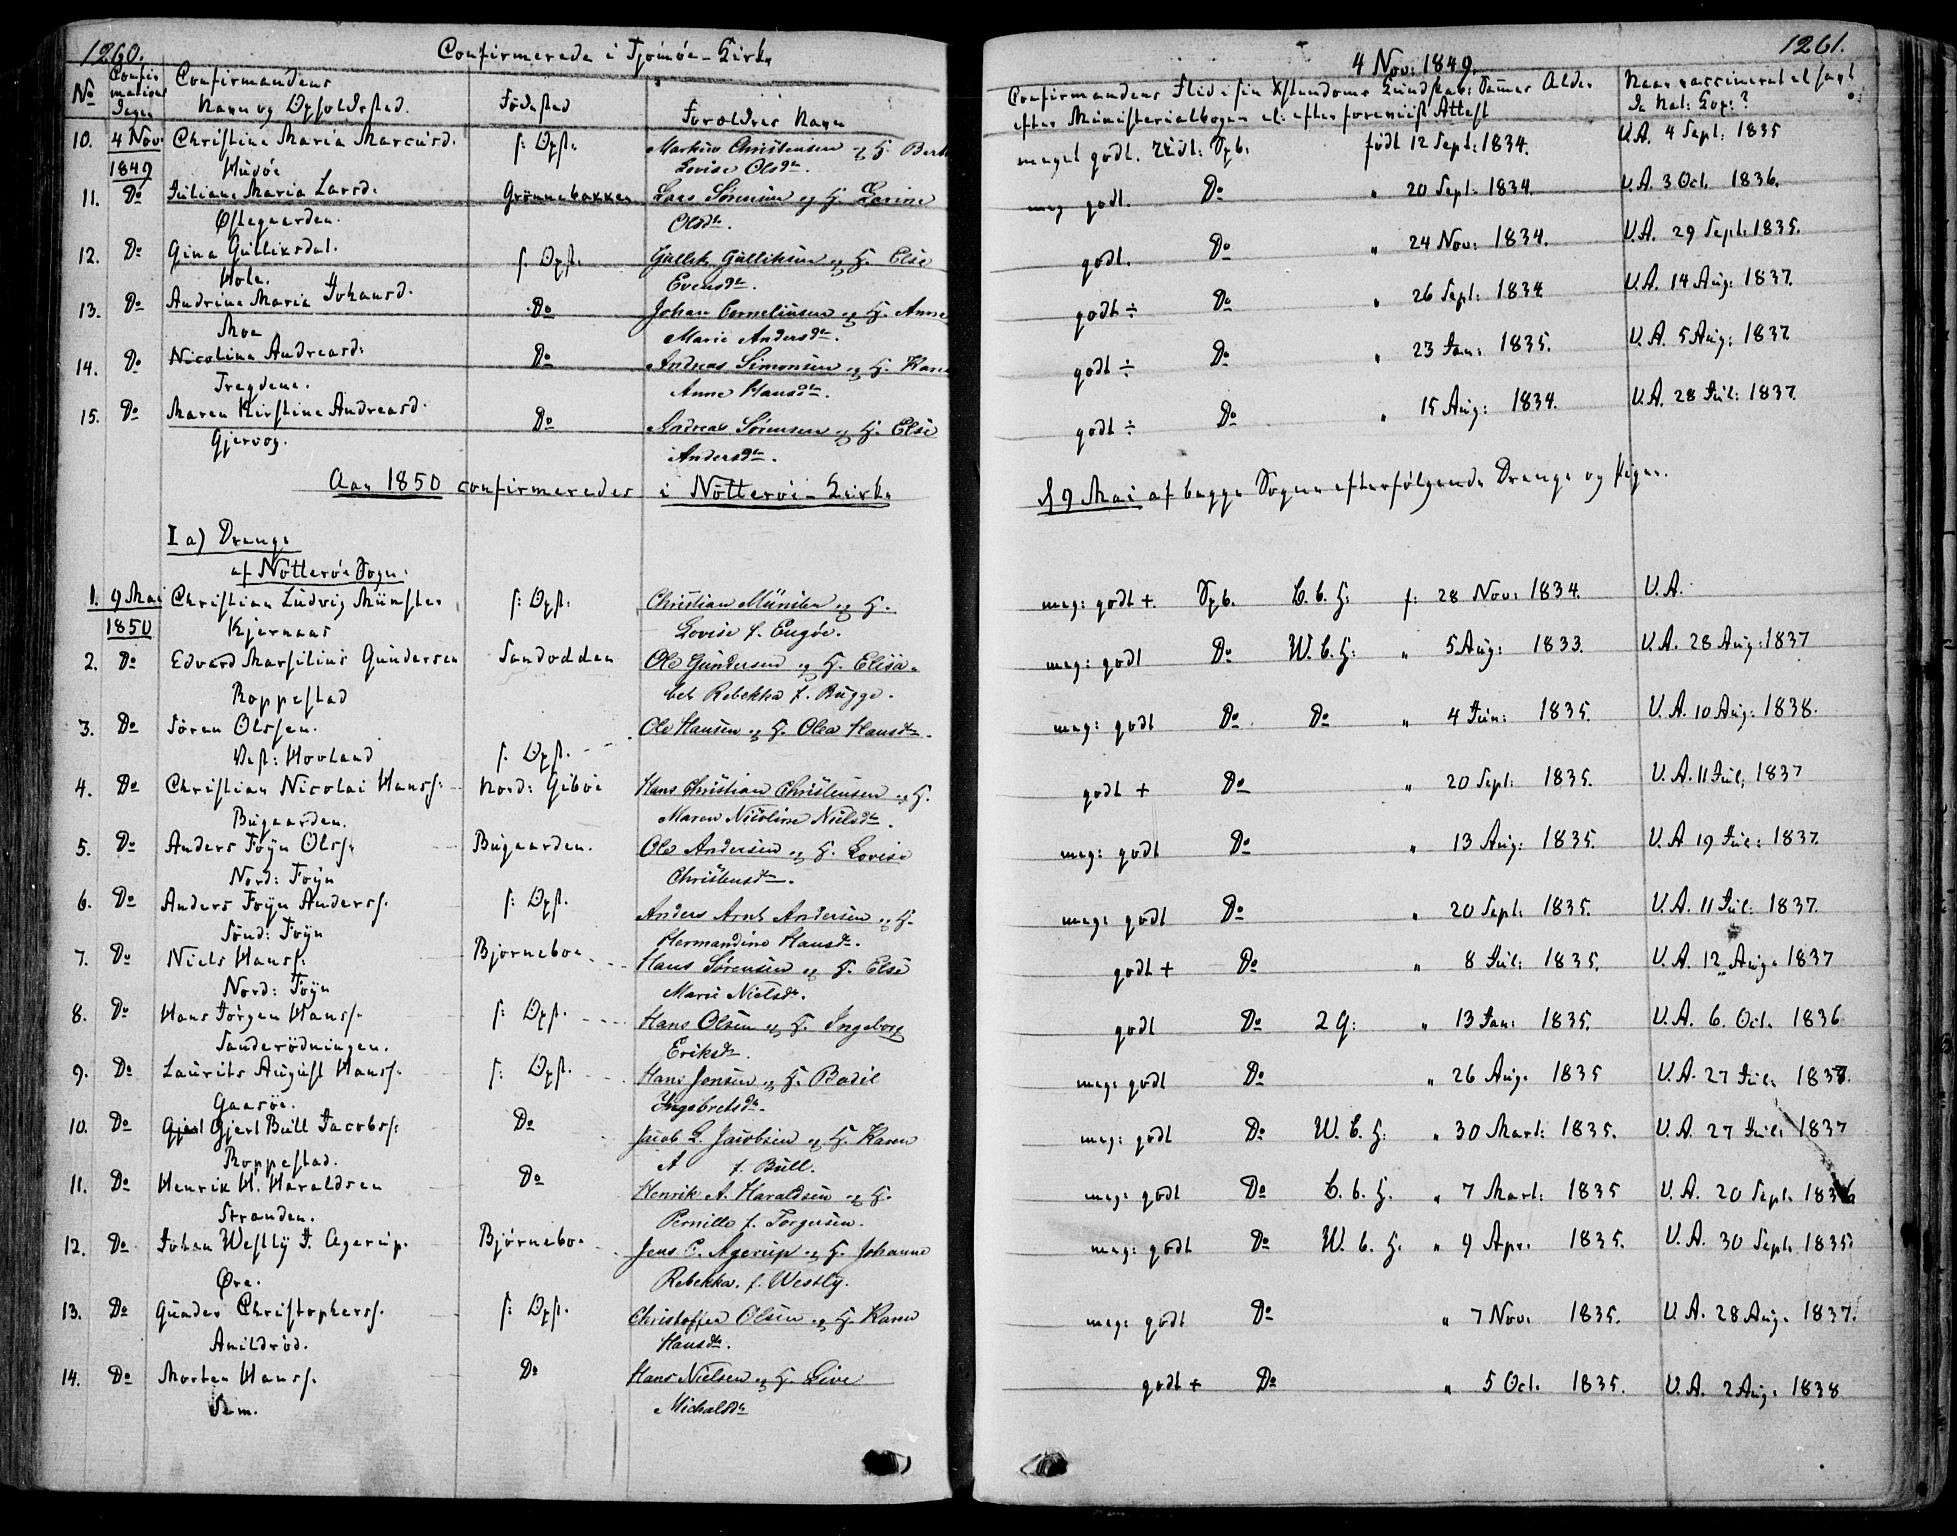 1260.
Confirmerede i Tjømøe-Kirke
No
Confirmations Dagen
Confirmandens
Navn og Opholdssted.
Fødested
Forældres Navn
10. 4 Nov. Christine Maria Marcusd. f: Opst. Markus Christensen og H. Berthe
1849 Hudøe Lovise Olsdtr.
11. Do Juliane Maria Larsd. Grønnebakken Lars Sørensen og H. Karine
Østegaarden. Olsdtr.
12. Do Gina Gulliksdat. f. Opst. Gullik Gulliksen og H. Else
Hole. Evensdtr.
13. Do Andrine Maria Johansd. Do Johan Corneliusen og H. Anne
Moe Marie Andersdtr.
14. Do Nicoline Andreasd: Do Andreas Simonsen og H. Karen
Tregdene. Anne Hansdtr.
15. Do Maren Kirstine Andreasd. Do Andreas Sørensen og H. Else
Gjervog. Andersdtr.
Aar 1850 confirmeredes i Nøtterøe-Kirke
I a) Drenge
af Nøtterøe Sogn:
1. 9 Mai Christian Ludvig Münster f: Opst: Christian Münster og H.
1850 Kjernaas Lovise f. Engøe.
2. Do Edvard Marsilius Gundersen Sandodden Ole Gundersen og H. Elisa-
Roppestad bet Rebekka f. Bugge.
3. Do Søren Olssen. Ole Hansen og H. Olea Hansdtr.
Vest: Hovland f. Opst.
4. Do Christian Nicolai Hanss: Nord: Gibøe Hans Christian Christensen og H.
Bugaarden. Maren Nicoline Nielsdtr.
5. Do Anders Føyn Olss. Bugaarden. Ole Andersen og H. Lovise
Nord: Føyn Christensdtr.
6. Do Anders Føyn Anderss. f: Opst. Anders Arnt Andersen og H.
Sønd: Føyn Hermandine Hansdtr.
7. Do Niels Hanss. Bjørneboe Hans Sørensen og H. Else
Nord: Føyn Marie Nielsdtr.
8. Do Hans Jørgen Hanss. f: Opst. Hans Olsen og H. Ingeborg
Sanderødningen. Eriksdtr.
9. Do Laurits August Hanss. f: Opst. Hans Jensen og H. Bodil
Gaasøe. Ingebretsdtr.
10. Do Gjert Bull Jacobss: Do Jacob L. Jacobsen og H. Karen
Roppestad. A f. Bull.
11. Do Henrik H. Haraldsen Do Henrik A. Haraldsen og H.
Stranden. Pernille f. Torgersen.
12. Do Johan Westly J. Agerup. Bjørneboe Jens C. Agerup og H. Johanne
Øre. Rebekka f. Westly.
13. Do Gunder Christophers. f: Opst. Christoffer Olsen og H. Karen
Amildrød. Hansdtr.
14. Do Morten Hanss. Do Hans Nielsen og H. Live
Sem. Michalsdtr
1261.
4 Nov: 1849.
Confirmandens Flid i sin Xstendoms Kundskab: Sammes Alder
efter Ministerialbogen el: efter foreviist Attest
Naar vaccineret el havt
de Nat: Kop:?
meget godt. Udt: Spb: født 12 Sept: 1834. V.A. 4 Sept: 1835
meg godt. Do " 20 Sept: 1834. V.A. 3 Oct. 1836.
godt. Do " 24 Nov: 1834. V.A. 29 Sept: 1835.
godt ÷ Do " 26 Sept: 1834 V.A. 14 Aug: 1837.
godt ÷ Do " 23 Jan: 1835. V.A. 5 Aug: 1837
godt ÷ Do " 15 Aug: 1834. V.A. 28 Jul: 1837.
d 9 Mai af begge Sogne efterfølgende Drenge og Piger.
meg: godt +. Spb. C.b.H: f: 28 Nov: 1834. V.A.
meg: godt Do W.C.H: " 5 Aug: 1833. V.A. 28 Aug: 1837
meg: godt Do Do " 4 Jun: 1835. V.A. 10 Aug: 1838.
godt + Do " 20 Sept: 1835. V.A. 11 Jul: 1837
meg: godt Do " 13 Aug: 1835. V.A 19 Jul: 1837.
meg: godt Do " 20 Sept: 1835. V.A. 11 Jul: 1837.
godt + Do " 8 Jul: 1835. V.A. 12 Aug. 1837
godt Do 2 G: " 13 Jan: 1835. V.A. 6. Oct. 1836
meg: godt Do " 26 Aug. 1835 V.A. 27 Jul: 1837.
meg: godt Do W.C.H: " 30 Mart: 1835. V.A. 27 Jul: 1837
meg: godt Do C.b.H. " 7 Mart: 1835 V.A. 20 Sept. 1836
meg: godt Do W.b.H. " 9 Apr. 1835. V.A. 30 Sept. 1835
meg: godt Do " 7 Nov. 1835. V.A. 28 Aug. 1837.
godt + Do " 5 Oct. 1835. V.A. 2 Aug. 1838